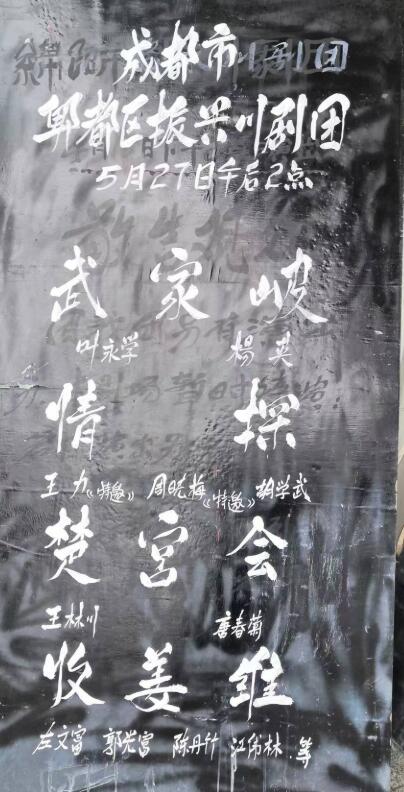 成都市
郫都区振兴川剧团
5月27日午后2点
武家坡
叶永学 楊英
情探
王力《特邀》 周晓梅《特邀》 胡学武
楚宫会
王林川 唐春菊
收姜维
左文富 郭光富 陈丹竹 江伟林 等